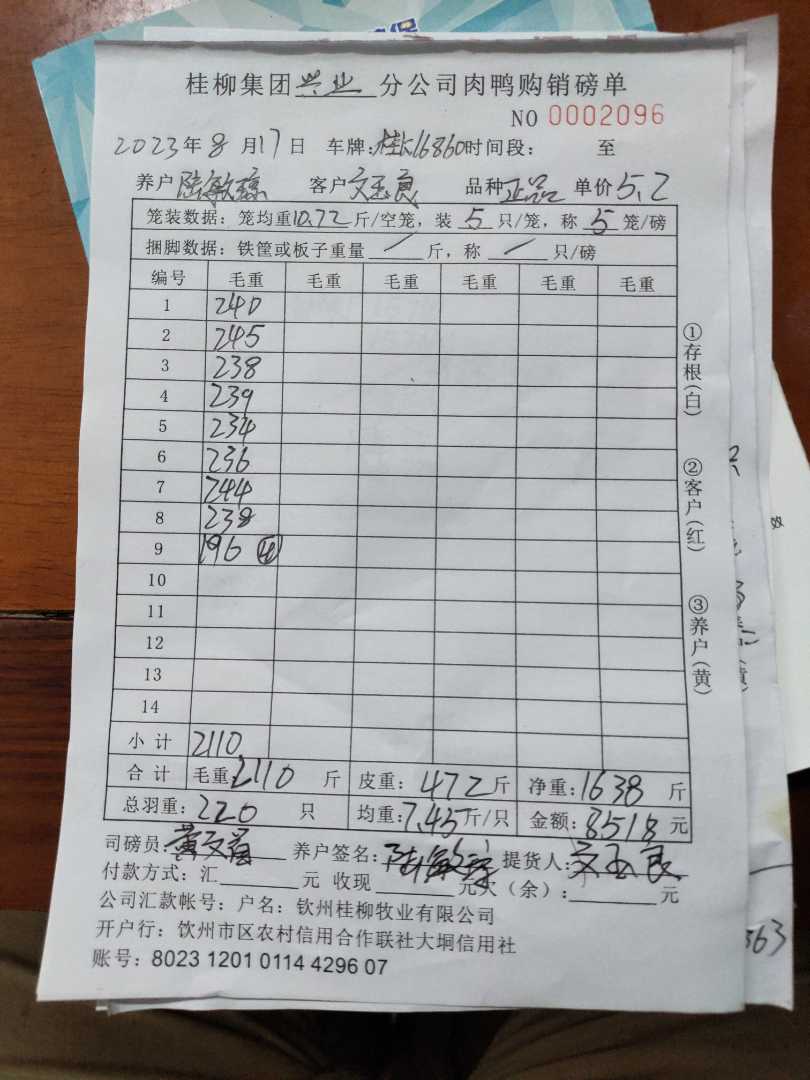 桂柳集团兴业分公司肉鸭购销磅单
NO 0002096
2023年8月17日 车牌:桂K16860时间段: 至
养户陆敏琼 客户文玉良 品种正品 单价5.2
笼装数据:笼均重10.72斤/空笼,装5只/笼,称5笼/磅
捆脚数据:铁筐或板子重量/斤,称/只/磅
编号 毛重 毛重 毛重 毛重 毛重 毛重
1 240
2 245
3 238
4 239
5 234
6 236
7 244
8 238
9 196 ④
10
11
12
13
14
小计 2110
合计 毛重:2110斤 皮重:472斤 净重:1638斤
总羽重:220只 均重:7.45斤/只 金额:8518元
司磅员:黄文 养户签名:陆敏琼 提货人:文玉良
付款方式:汇 元 收现 元欠(余): 元
公司汇款帐号:户名:钦州桂柳牧业有限公司
开户行:钦州市区农村信用合作联社大垌信用社
账号:8023 1201 0114 4296 07
①存根(白)
②客户(红)
③养户(黄)
效
363